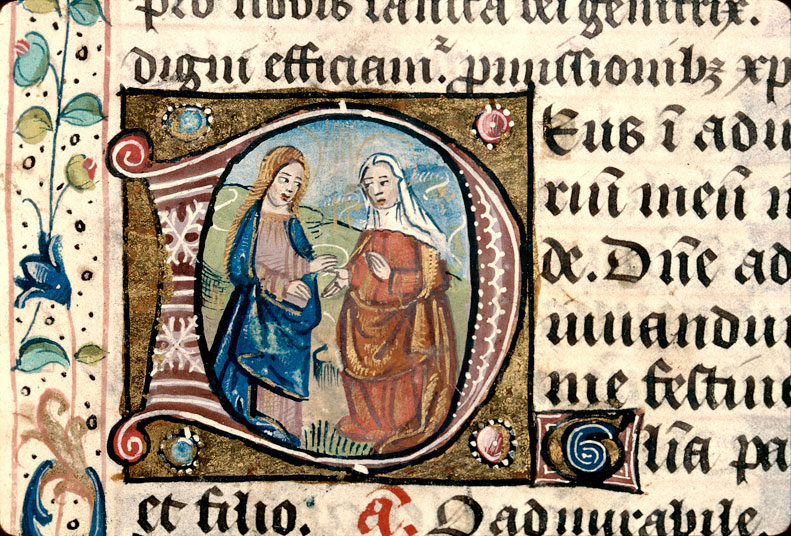 pro nobis sancta dei genitrix.
digni efficiam². ꝓmissionibꝫ xp
DEus ī adiu
riū meū ī
de. Dn̄e ad
iuuandum
me festine
Glīa pa
et filio. a. O admirabile.